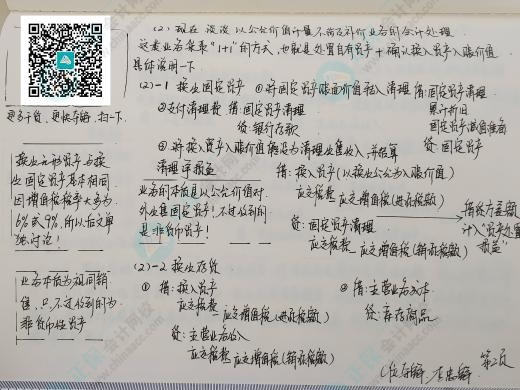 (2) 现在谈谈以公允价值计量不涉及补价业务的会计处理
这类业务采取"1+1"的方式,也就是处置自有资产+确认换入资产入账价值
具体说明一下
(2)-1 换出固定资产 ①将固定资产账面价值转入清理 借:固定资产清理
累计折旧
固定资产减值准备
贷:固定资产
②支付清理费 借:固定资产清理
贷:银行存款
③将换入资产入账价值确认为清理收入,并结算
清理净损益
借:换入资产(以换出公允为入账价值)
应交税费 应交增值税(进项税额)
贷:固定资产清理
应交税费 应交增值税(销项税额)
借贷方差额
计入"资产处置
损益"
更多干货,更快存储,扫一下
换出无形资产与换
出固定资产基本相同
因增值税税率大多为
6%或9%,所以后文单
独讨论!
业务本质是以公允价值对
外出售固定资产!不过收到的
是非货币资产!
(2)-2 换出存货
① 借:换入资产
应交税费 应交增值税(进项税额)
贷:主营业务收入
应交税费 应交增值税(销项税额)
② 借:主营业务成本
贷:库存商品
业务本质为视同销
售,只不过收到的为
非货币性资产
第2页